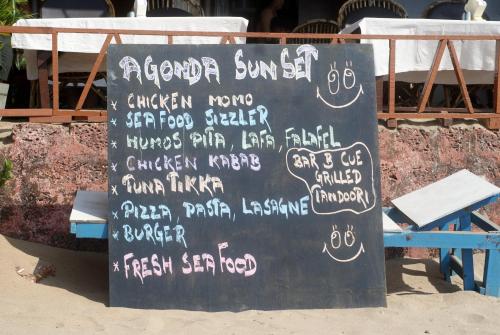 AGONDA SUNSET
* CHICKEN MOMO
* SEA FOOD SIZZLER
* HUMOS PITA, LAFA, FALAFEL
* CHICKEN KABAB
* TUNA TIKKA
* PIZZA, PASTA, LASAGNE
* BURGER
* FRESH SEA FOOD
BAR B CUE
GRILLED
TANDOORI